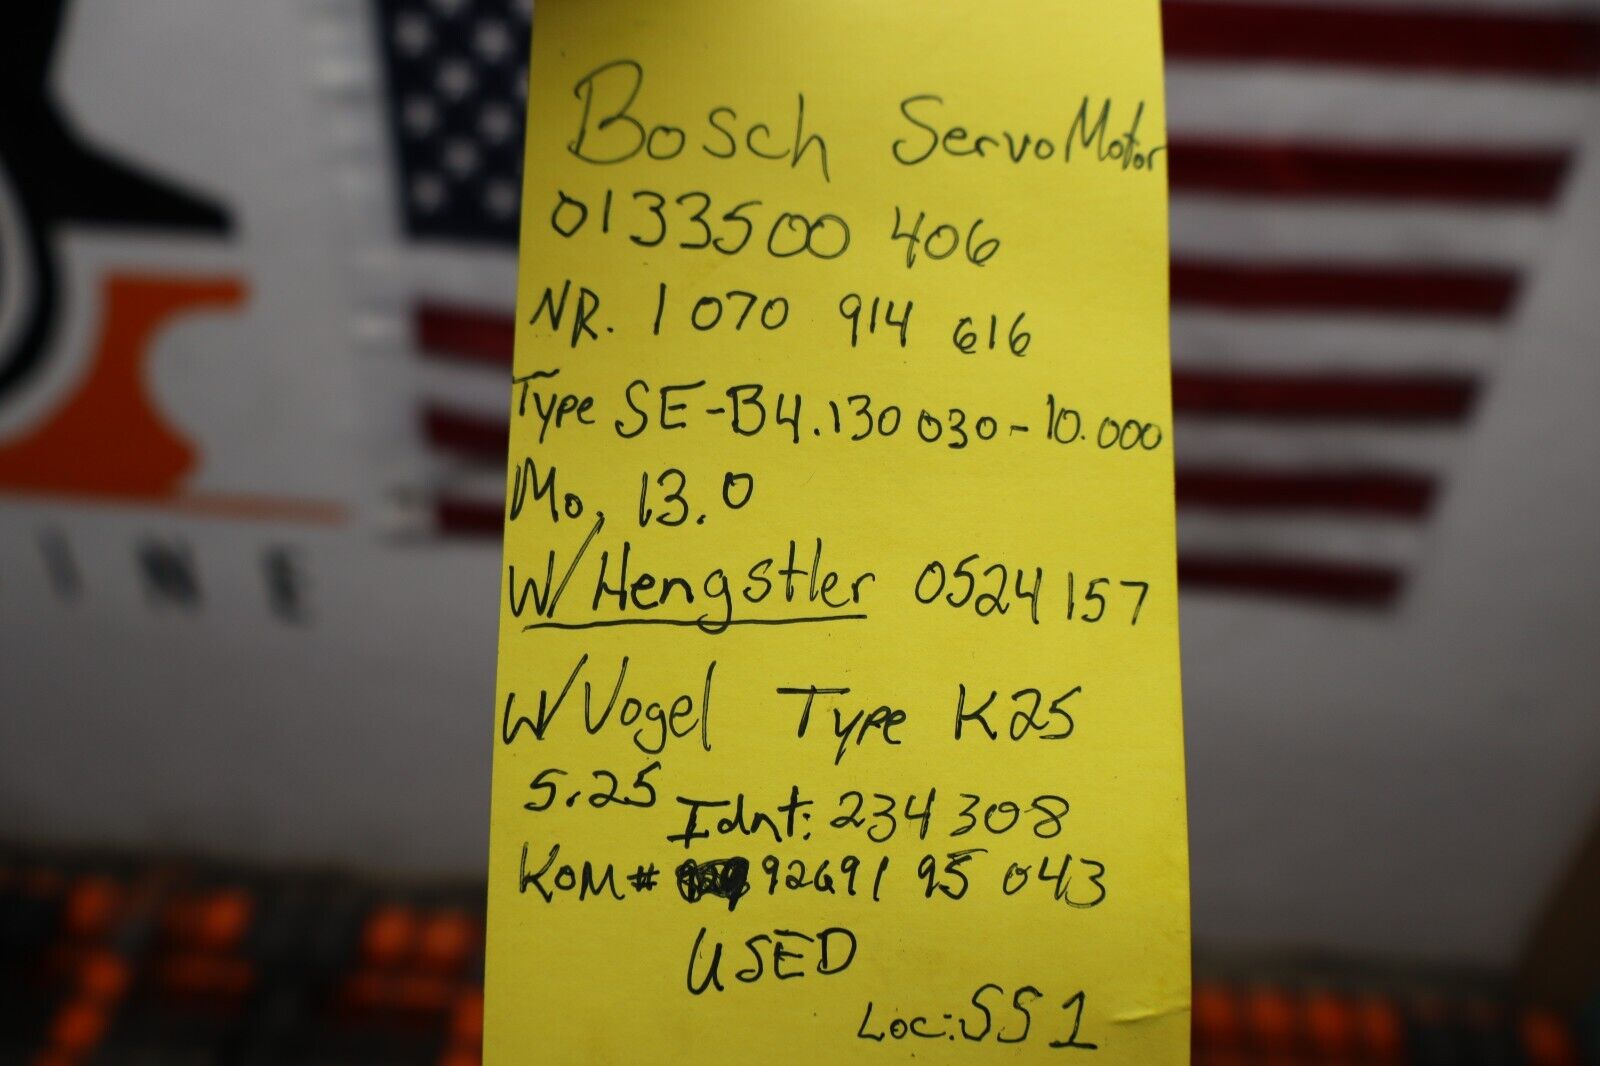 Bosch Servo Motor
0133500 406
NR. 1 070 914 616
Type SE-B4.130 030-10.000
Mo, 13.0
W/Hengstler 0524157
W/Vogel Type K25
5.25 Idnt: 234308
KOM# 92691 95 043
USED
Loc: SS1
INE